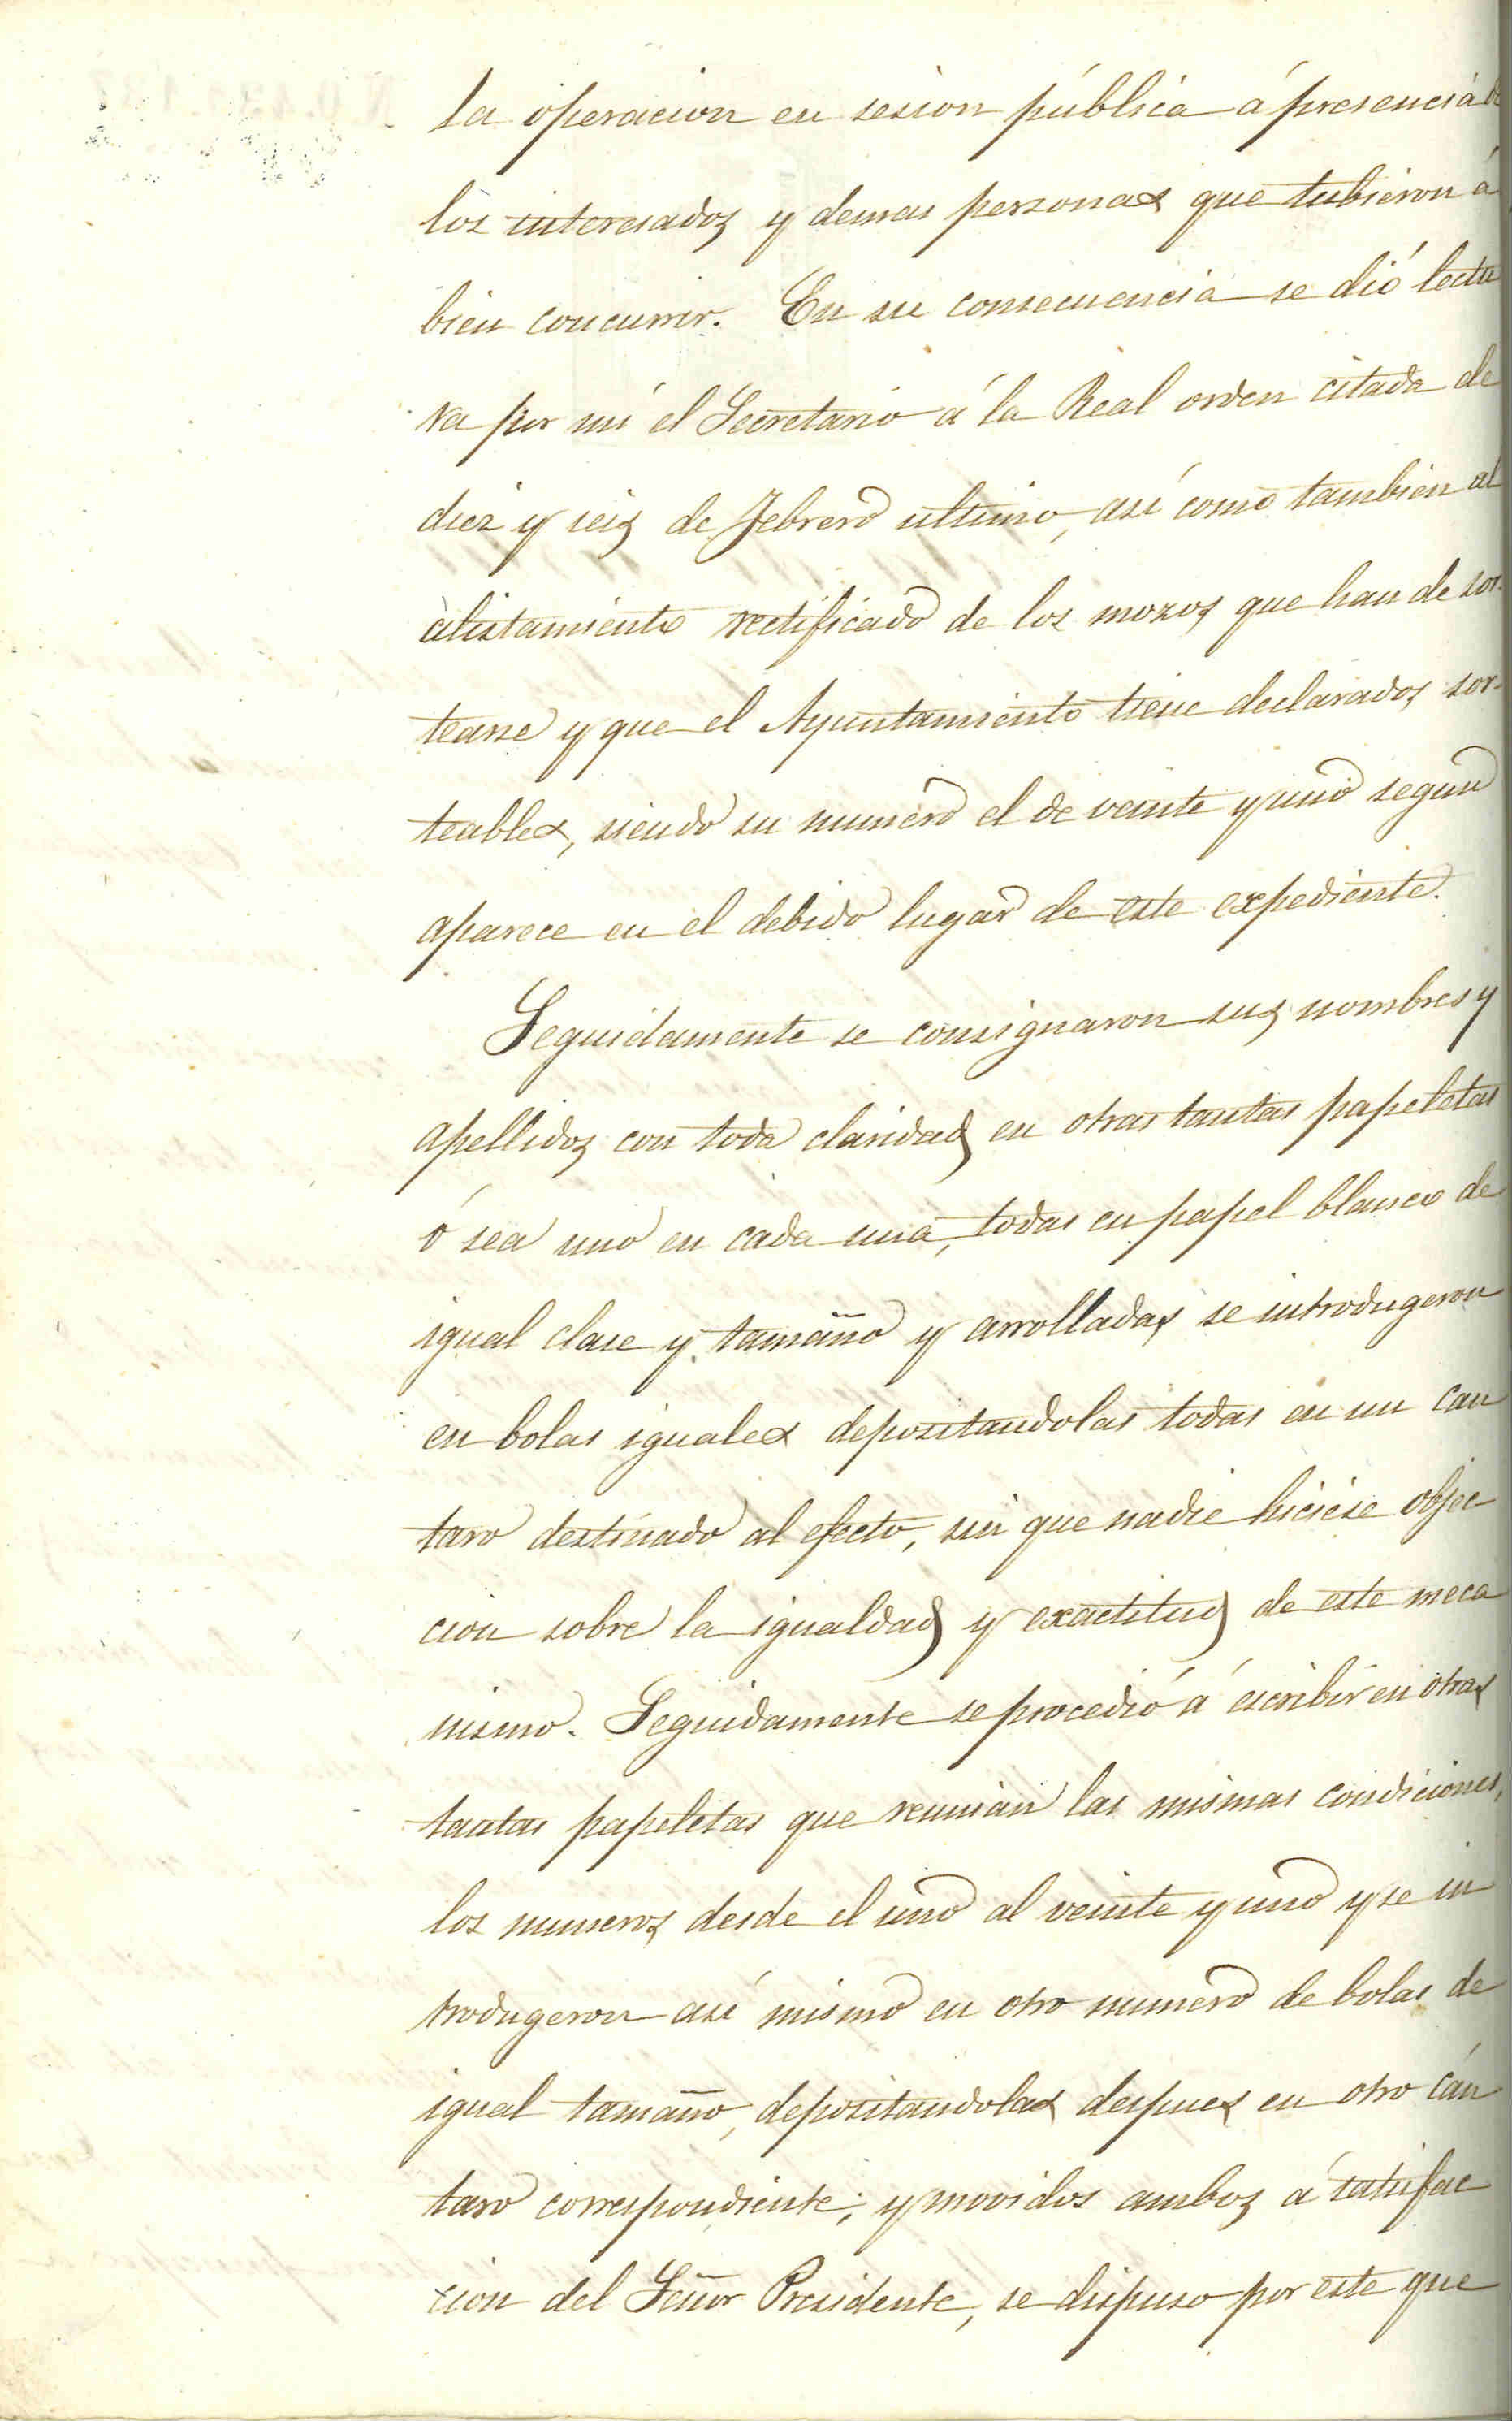 la operacion en sesion pública á presencia de
los interesados y demas personas que tubieron á
bien concurrir. En su consecuencia se dió lectu
ra por mí el Secretario á la Real orden citada de
diez y seis de Febrero ultimo, así como tambien al
alistamiento rectificado de los mozos que han de sor-
tearse y que el Ayuntamiento tiene declarados sor-
teables, siendo su numero el de veinte y uno segun
aparece en el debido lugar de este expediente.
Seguidamente se consignaron sus nombres y
apellidos con toda claridad en otras tantas papeletas
ó sea uno en cada una, todas en papel blanco de
igual clase y tamaño y arrolladas se introdugeron
en bolas iguales depositandolas todas en un can
taro destinado al efecto, sin que nadie hiciese objec
cion sobre la igualdad y exactitud de este meca
nismo. Seguidamente se procedió á escribir en otras
tantas papeletas que reunian las mismas condiciones,
los numeros desde el uno al veinte y uno y se in
trodugeron así mismo en otro numero de bolas de
igual tamaño, depositandolas despues en otro cán
taro correspondiente; y movidos ambos á satisfac
cion del Señor Presidente, se dispuso por este que